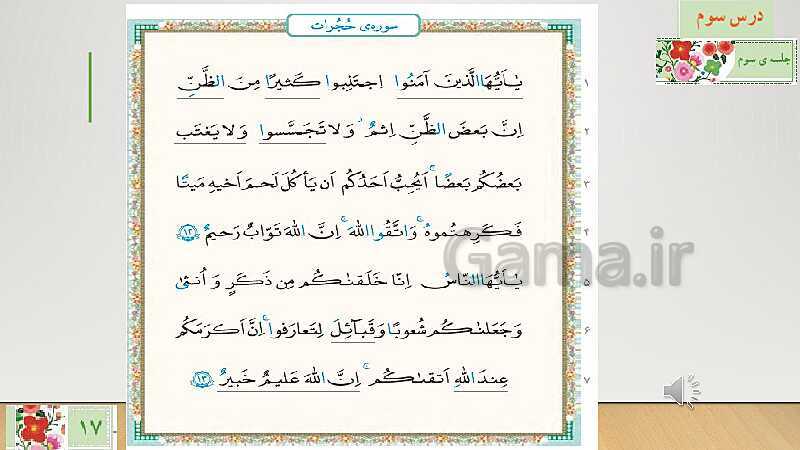 درس سوم
جلسه ی سوم
سوره‌ی حُجُرات
۱ یٰۤاَیُّهَا الَّذینَ آمَنُوا اجتَنِبوا کَثیرًا مِنَ الظَّنِّ
۲ اِنَّ بَعضَ الظَّنِّ اِثمٌ ۖ وَ لا تَجَسَّسوا وَ لا یَغتَب
۳ بَعضُکُم بَعضًا ۚ اَیُحِبُّ اَحَدُکُم اَن یَأکُلَ لَحمَ اَخیهِ مَیتًا
۴ فَکَرِهتُموهُ ۚ وَ اتَّقُوا اللّٰهَ ۚ اِنَّ اللّٰهَ تَوّابٌ رَحیمٌ ۱۲
۵ یٰۤاَیُّهَا النّاسُ اِنّا خَلَقنٰکُم مِن ذَکَرٍ وَ اُنثیٰ
۶ وَ جَعَلنٰکُم شُعوبًا وَ قَبآئِلَ لِتَعارَفوا ۚ اِنَّ اَکرَمَکُم
۷ عِندَ اللّٰهِ اَتقٰىکُم ۚ اِنَّ اللّٰهَ عَلیمٌ خَبیرٌ ۱۳
Gama.ir
۱۷